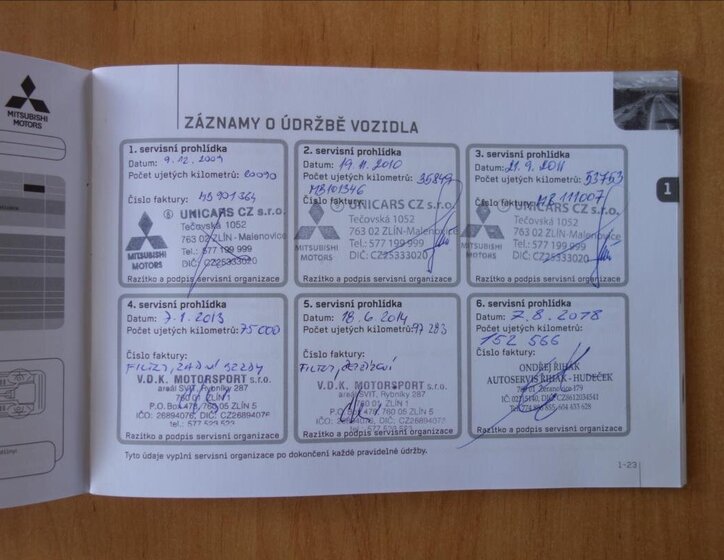 MITSUBISHI
MOTORS
ZÁZNAMY O ÚDRŽBĚ VOZIDLA
1
1. servisní prohlídka
Datum: 9.12.2009
Počet ujetých kilometrů: 20090
Číslo faktury: MB901364
UNICARS CZ s.r.o.
Tečovská 1052
763 02 ZLÍN-Malenovice
Tel.: 577 199 999
DIČ: CZ25333020
MITSUBISHI
MOTORS
Razítko a podpis servisní organizace
2. servisní prohlídka
Datum: 19.11.2010
Počet ujetých kilometrů: 35849
MB101346
Číslo faktury:
UNICARS CZ s.r.o.
Tečovská 1052
763 02 ZLÍN-Malenovice
Tel.: 577 199 999
DIČ: CZ25333020
MITSUBISHI
MOTORS
Razítko a podpis servisní organizace
3. servisní prohlídka
Datum: 21.9.2011
Počet ujetých kilometrů: 53753
Číslo faktury: MB111007
UNICARS CZ s.r.o.
Tečovská 1052
763 02 ZLÍN-Malenovice
Tel.: 577 199 999
DIČ: CZ25333020
MITSUBISHI
MOTORS
Razítko a podpis servisní organizace
4. servisní prohlídka
Datum: 7.1.2013
Počet ujetých kilometrů: 75000
Číslo faktury:
V.D.K. MOTORSPORT s.r.o.
areál SVIT, Rybníky 287
760 01 ZLÍN 1
P.O.Box 478, 760 05 ZLÍN 5
IČO: 26894076, DIČ: CZ26894076
tel.: 577 523 523
Razítko a podpis servisní organizace
5. servisní prohlídka
Datum: 18.6.2014
Počet ujetých kilometrů: 97283
Číslo faktury:
V.D.K. MOTORSPORT s.r.o.
areál SVIT, Rybníky 287
760 01 ZLÍN 1
P.O.Box 478, 760 05 ZLÍN 5
IČO: 26894076, DIČ: CZ26894076
tel.: 577 523 523
Razítko a podpis servisní organizace
6. servisní prohlídka
Datum: 7.8.2018
Počet ujetých kilometrů:
152 566
Číslo faktury:
ONDŘEJ ŘIHÁK
AUTOSERVIS ŘIHÁK - HUDEČEK
Razítko a podpis servisní organizace
Tyto údaje vyplní servisní organizace po dokončení každé pravidelné údržby.
1-23